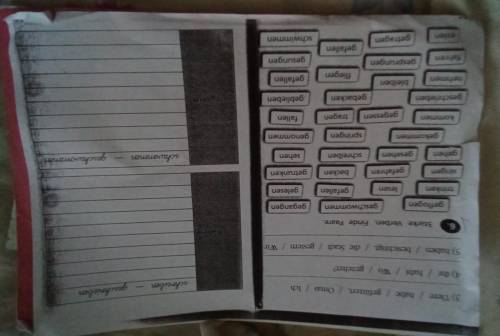 3) Tiere / habe / gefüttert. / Ich
4) du / habt / Wir / gesehen?
5) haben / besichtigt. / die Stadt / gestern / Wir
6. Starke Verben. Finde Paare.
geflogen geschwommen gegangen
trinken lesen gefallen gelesen
singen gefahren backen getrunken
gehen gesehen schreiben sehen
gekommen springen genommen
kommen gegessen tragen fallen
geschrieben gebacken geblieben
nehmen bleiben fliegen gefallen
fahren gesprungen gesungen
essen getragen gefallen schwimmen
schreiben — geschrieben
schwimmen — geschwommen